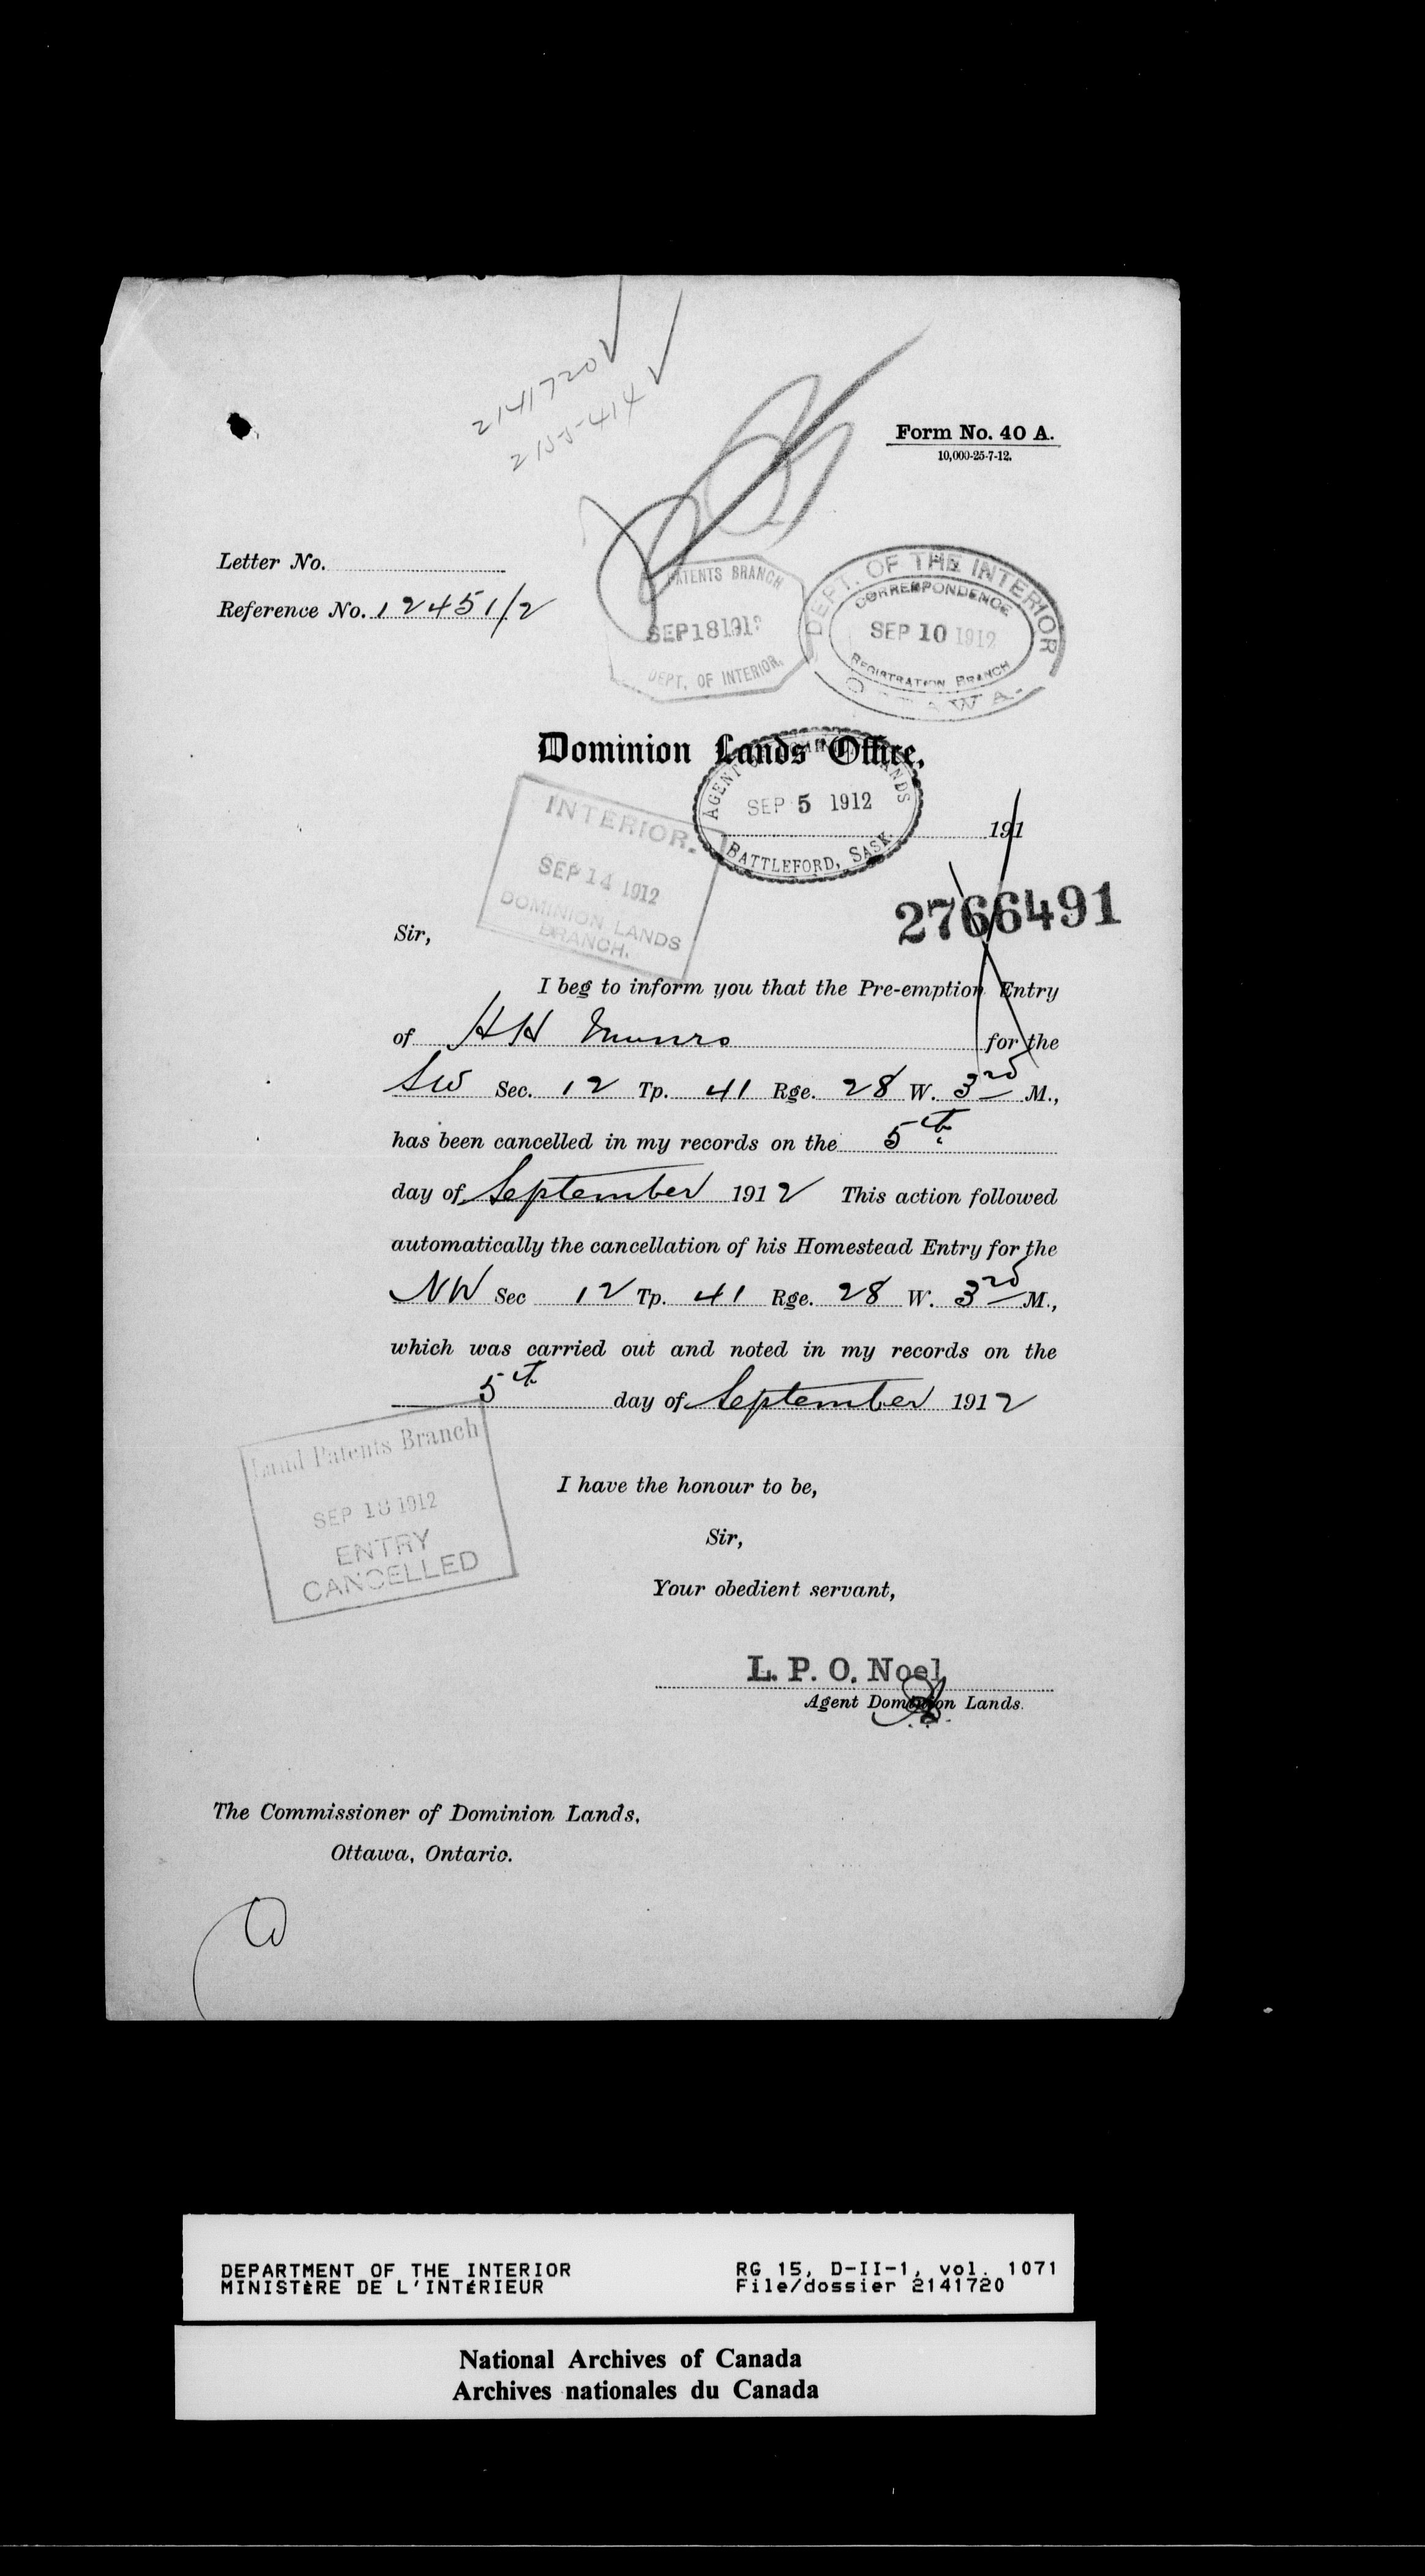 2141720
2155414
Form No. 40 A.
10,000-25-7-12.
Letter No.
Reference No. 12451/2
PATENTS BRANCH
SEP 18 191
DEPT. OF INTERIOR.
DEPT. OF THE INTERIOR
CORRESPONDENCE
SEP 10 1912
REGISTRATION BRANCH
OTTAWA.
Dominion Lands Office,
AGENT DOMINION LANDS
SEP 5 1912
BATTLEFORD, SASK.
191
INTERIOR.
SEP 14 1912
DOMINION LANDS
BRANCH.
2766491
Sir,
I beg to inform you that the Pre-emption Entry
of H H Munro for the
SW Sec. 12 Tp. 41 Rge. 28 W. 3rd M.,
has been cancelled in my records on the 5th
day of September 1912 This action followed
automatically the cancellation of his Homestead Entry for the
NW Sec 12 Tp. 41 Rge. 28 W. 3rd M.,
which was carried out and noted in my records on the
5th day of September 1912
Land Patents Branch
SEP 18 1912
ENTRY
CANCELLED
I have the honour to be,
Sir,
Your obedient servant,
L. P. O. Noel
Agent Dominion Lands.
The Commissioner of Dominion Lands,
Ottawa, Ontario.
DEPARTMENT OF THE INTERIOR
MINISTÈRE DE L'INTÉRIEUR
RG 15, D-II-1, vol. 1071
File/dossier 2141720
National Archives of Canada
Archives nationales du Canada